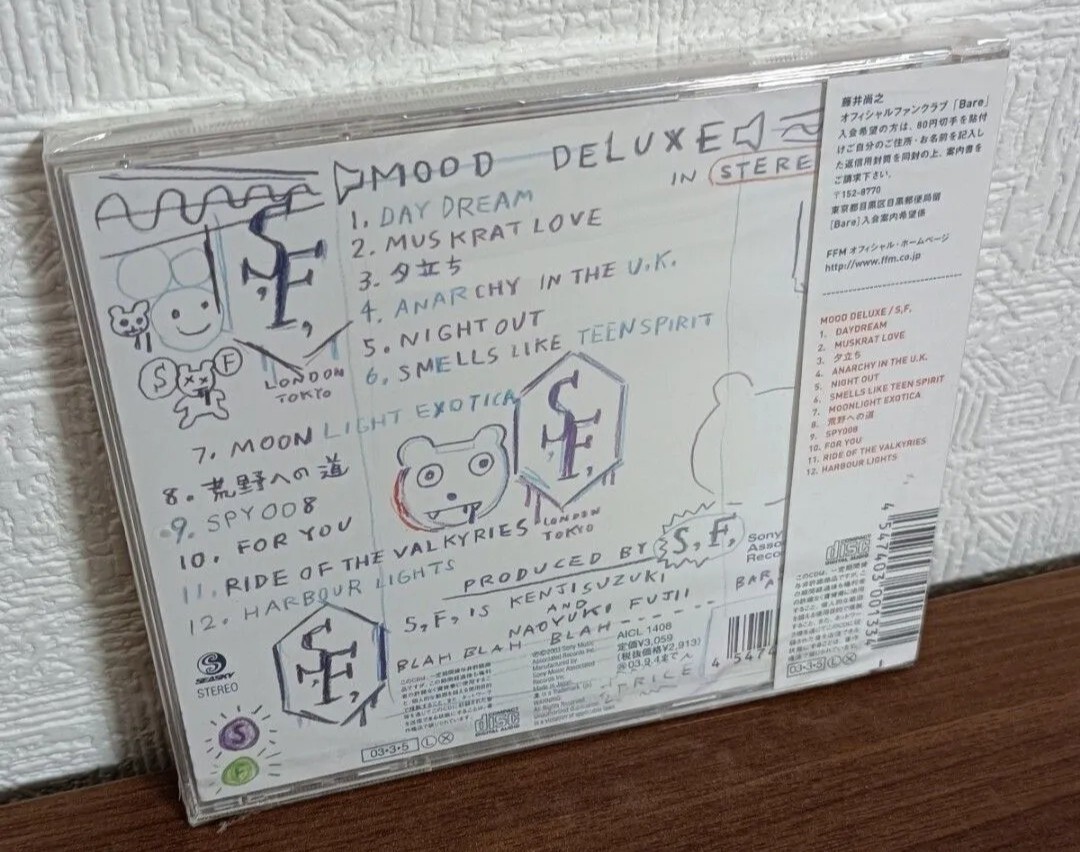 MOOD DELUXE
IN STERE
1. DAY DREAM
2. MUSKRAT LOVE
3. 夕立ち
4. ANARCHY IN THE U.K.
5. NIGHT OUT
6. SMELLS LIKE TEEN SPIRIT
7. MOON LIGHT EXOTICA
8. 荒野への道
9. SPY008
10. FOR YOU
11. RIDE OF THE VALKYRIES
12. HARBOUR LIGHTS
S,F,
LONDON
TOKYO
S F
S,F,
LONDON
TOKYO
PRODUCED BY S,F,
S,F, IS KENJI SUZUKI
AND
NAOYUKI FUJII
BLAH BLAH BLAH ----
S,F,
SEASKY
STEREO
S
F
Sony
Asso
Reco
BAR
A
AICL 1408
定価¥3,059
(税抜価格¥2,913)
PRICE
4 5474
03・3・5 L X
COMPACT
disc
DIGITAL AUDIO
藤井尚之
オフィシャルファンクラブ「Bare」
入会希望の方は、80円切手を貼付
けご自分のご住所・お名前を記入し
た返信用封筒を同封の上、案内書を
ご請求下さい。
〒152-8770
東京都目黒区目黒郵便局留
[Bare]入会案内希望係
FFM オフィシャル・ホームページ
http://www.ffm.co.jp
MOOD DELUXE / S,F,
1. DAYDREAM
2. MUSKRAT LOVE
3. 夕立ち
4. ANARCHY IN THE U.K.
5. NIGHT OUT
6. SMELLS LIKE TEEN SPIRIT
7. MOONLIGHT EXOTICA
8. 荒野への道
9. SPY008
10. FOR YOU
11. RIDE OF THE VALKYRIES
12. HARBOUR LIGHTS
disc
03・3・5 L X